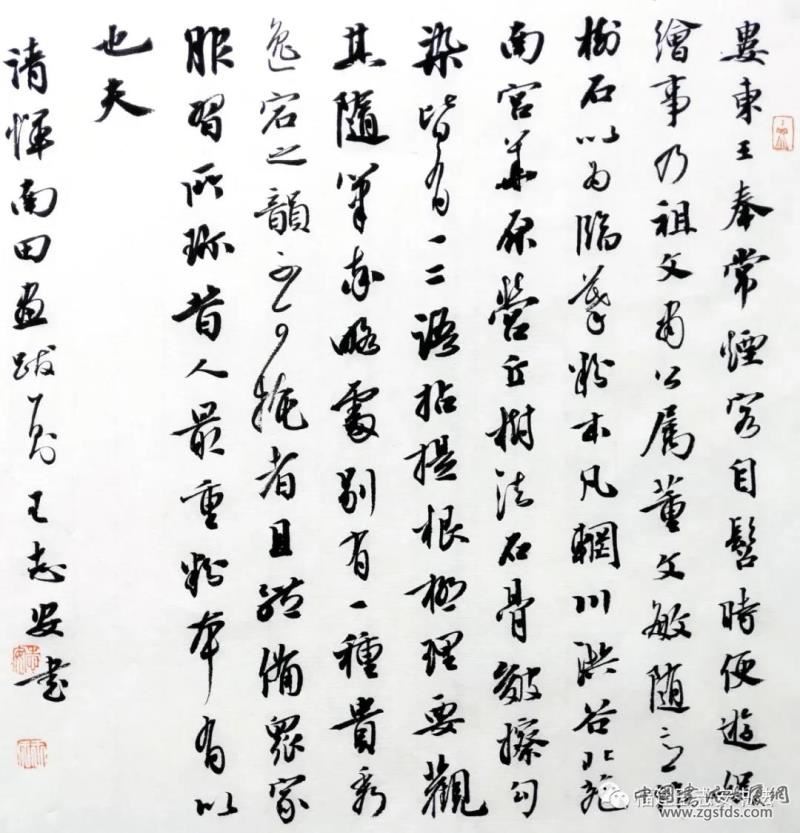 婁東王奉常煙客自髫時便遊娛
繪事乃祖文肅公屬董文敏隨意
樹石以為臨摹粉本凡輞川洪谷北苑
南宮華原營丘樹法石骨皴擦勾
染皆有一二語拈提根極理要觀
其隨筆率略處別有一種貴秀
逸宕之韻不可掩者且體備眾家
服習所珍昔人最重粉本有以
也夫
清惲南田畫跋一則王志安書
www.zgsfds.com